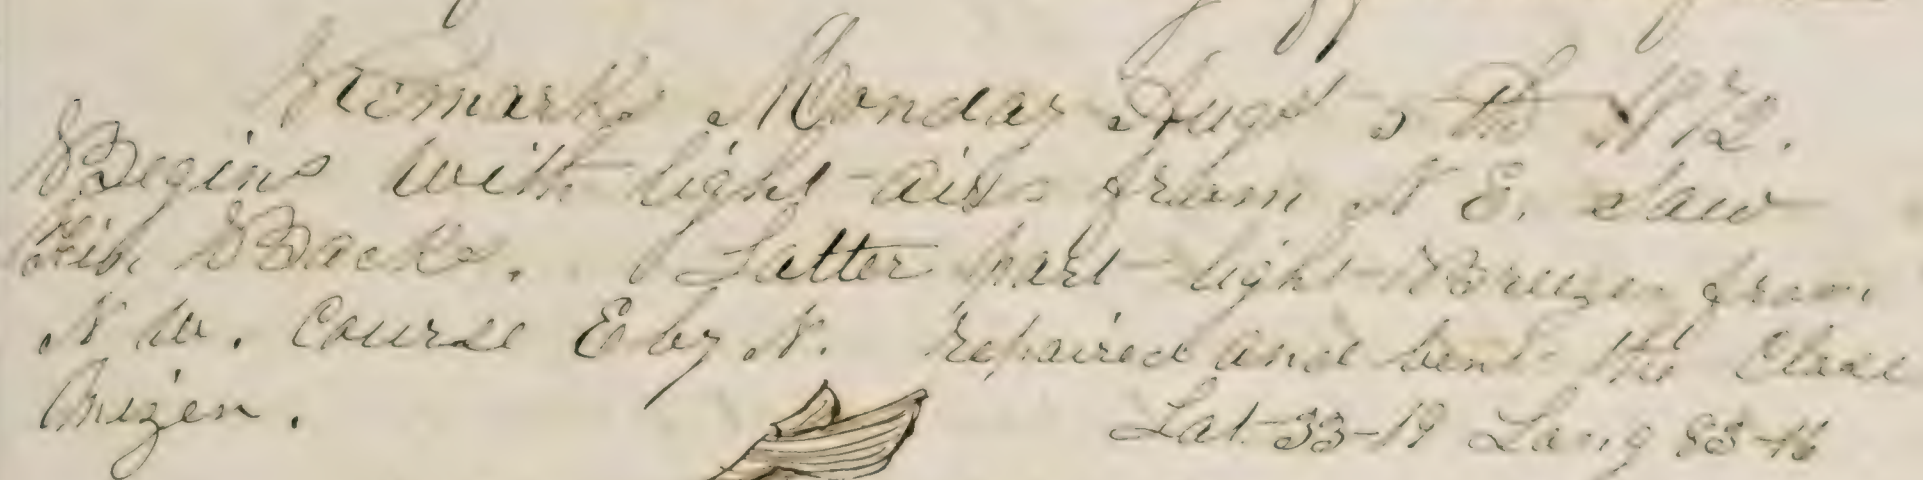 Remarks Monday Augst 5th 1872.
Begins with light airs from N E. Saw
Fin Backs. Latter part light Breezes from
N W. Course E by N. Repaired and bent the Clean
Mizen.
Lat 33-19 Long 68-16